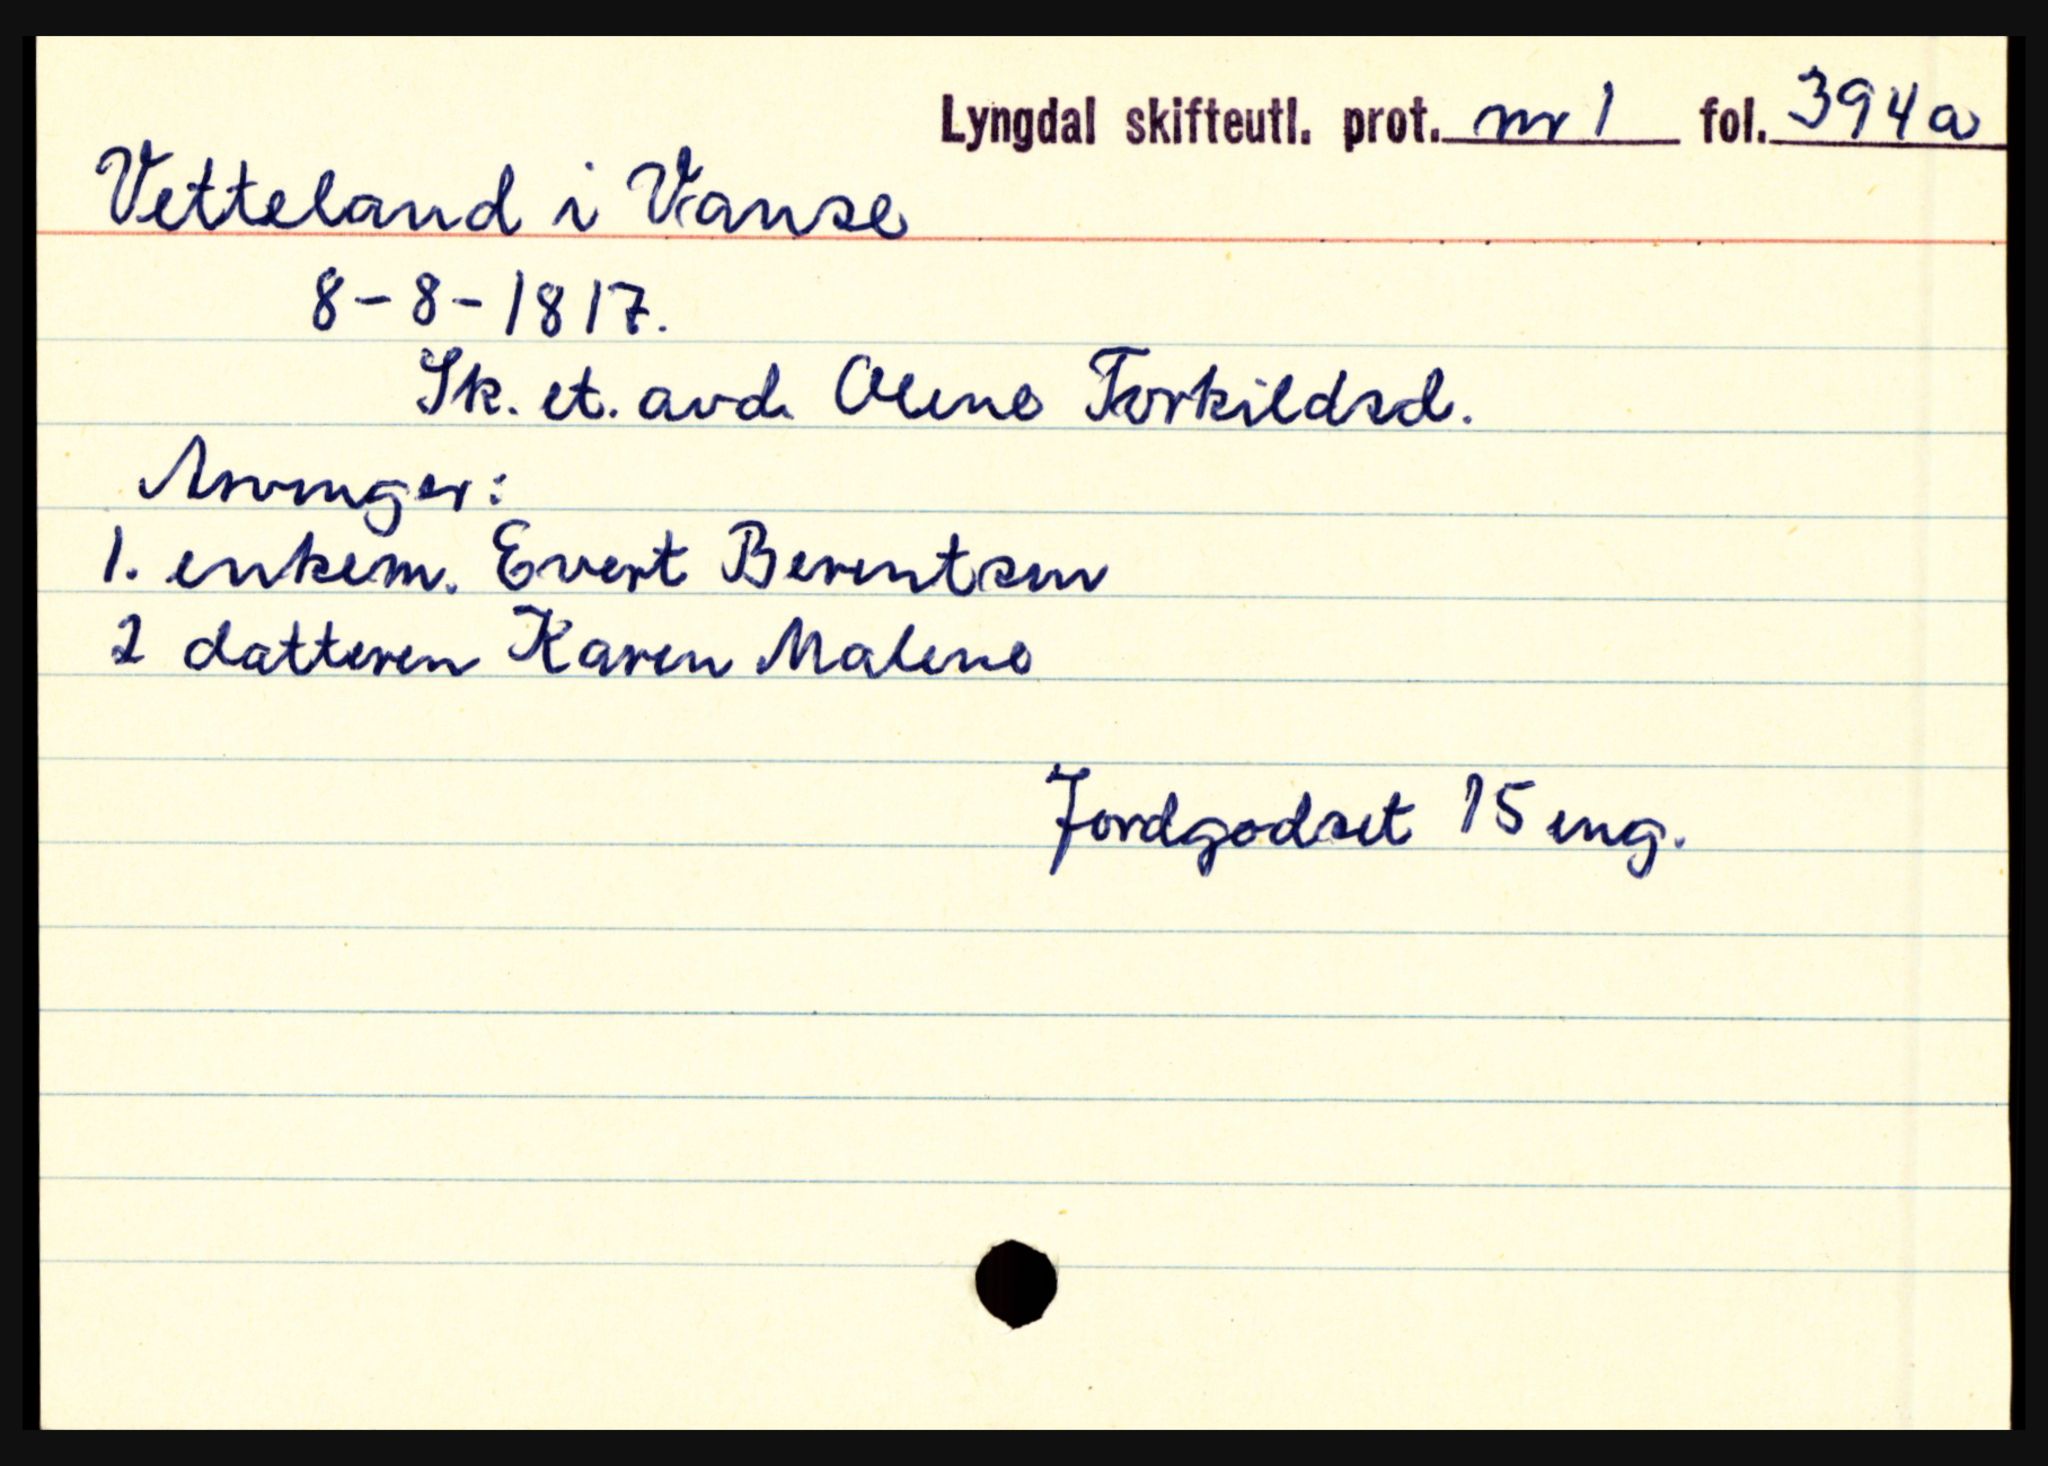 Lyngdal skifteutl. prot. nr 1 fol. 394a
Vetteland i Vanse
8-8-1817.
Sk. et. avd. Olene Torkildsd.
Arvinger:
1. enkem. Evert Berentsen
2 datteren Karen Malene
Jordgodset 15 eng.